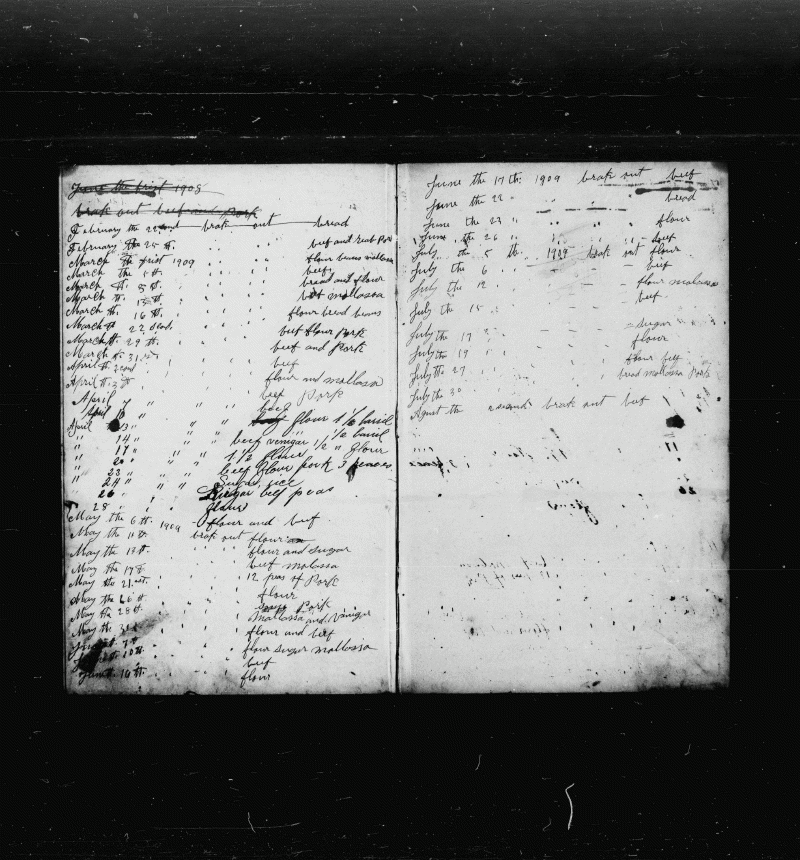 June the frist 1908
brak out beef and Pork
February the 22nd brak out bread
February the 25 th. " " beef and
March the frist 1909 " " flour beens
March the " " beef
March th. 5 th. " " bread and flour
March th. 13 th. " " mollassa
March th. 16 th. " " flour bread beens
March th 22 " " beef flour Pork
March th. 29 th. " " beef and Pork
March th. 31 " " beef
April th. 2 " " flour and mollassa
April th. " " beef Pork
April 7 " " beef
April 10 " "
April 13 " " " flour 1 1/2 buril
" 14 " " " beef venigar 1 1/2 buril
" 17 " " " 1/2 flour 1/2 " flour
" 20 " " " beef flour pork 3
" 23 " " " Sugar rice
" 24 " " " Sugar beef peas
" 26 " flour
" 28 "
May the 6 th. 1909 - flour and beef
May the 11 th. brak out flour
May the 13 th. " " flour and sugar
May the 17 th. " " beef molassa
May the 21 " " 12 pees of Pork
May the 26 th. " " flour
May the 28 th. " " Pork
May th. 31 " " Mollassa and Viniger
June th. 7 th " " flour and beef
10 th. " " flour Sugar mollassa
June th. 16 th. " " beef
flour
June the 17 th. 1909 brak out beef
June the 22 " " " bread
June the 23 " " " flour
June the 26 " " " beef
July the 5 th. 1909 brak out flour
July the 6 " " beef
July the 12 " " flour
July the 15 " " beef
July the 17 " " sugar
July the 19 " " flour
July th 27 " " flour beef
July th 30 " " bread mollassa Pork
Agust the brak out beef